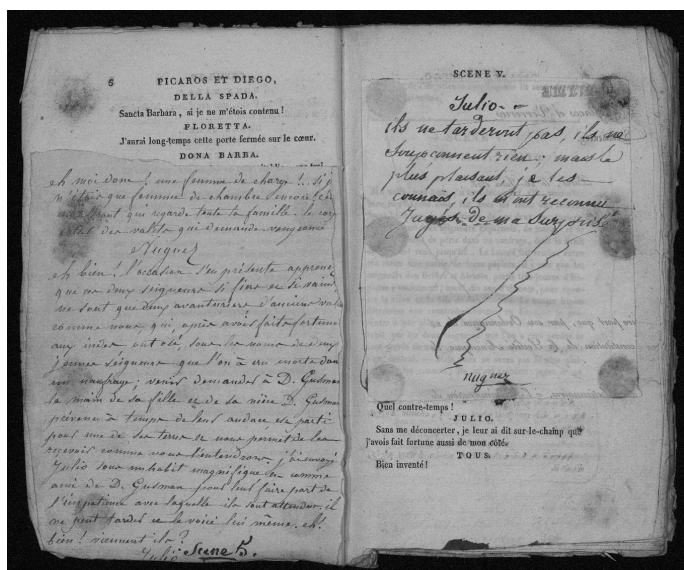 6 PICAROS ET DIEGO,
DELLA SPADA.
Sancta Barbara, si je ne m'étois contenu !
FLORETTA.
J'aurai long-temps cette porte fermée sur le cœur.
DONA BARBA.
eh moi donc ! une femme de charge !.. si j
n'étais que femme de chambre encore ! c'e
qui regarde toute la famille. le corp
des valets qui demande vengeance
Nugnez
eh bien ! l'occasion s'en présente apprenez
que ces deux seigneurs si fiers et si vains
ne sont que deux avanturiers d'anciens vale
comme nous qui, après avoir fait fortune
aux indes ont osé, sous les noms de deux
jeunes seigneurs que l'on a cru morts dan
un naufrage, venir demander à D. Gusman
la main de sa fille et de sa nièce D. Gusman
prévenu à temps de leur audace est parti
pour une de ses terres et nous permet de les
recevoir comme nous l'entendrons j'ai envoyé
Julio sous un habit magnifique et comme
ami de D. Gusman pour leur faire part de
l'impatience avec laquelle ils sont attendus. il
ne peut tarder et le voici lui même. eh !
bien ! viennent ils ?
Julio Scene 5.
SCENE V.
Julio
ils ne tarderont pas, ils ne
soupçonnent rien ; mais le
plus plaisant, je les
connais, ils m'ont reconnu
Jugez de ma surprise
nugnez
Quel contre-temps !
JULIO.
Sans me déconcerter, je leur ai dit sur-le-champ que
j'avois fait fortune aussi de mon côté.
TOUS.
Bien inventé !